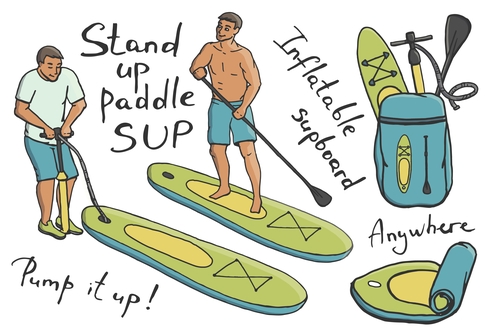 Stand
up
paddle
SUP
Inflatable
supboard
Anywhere
Pump it up!